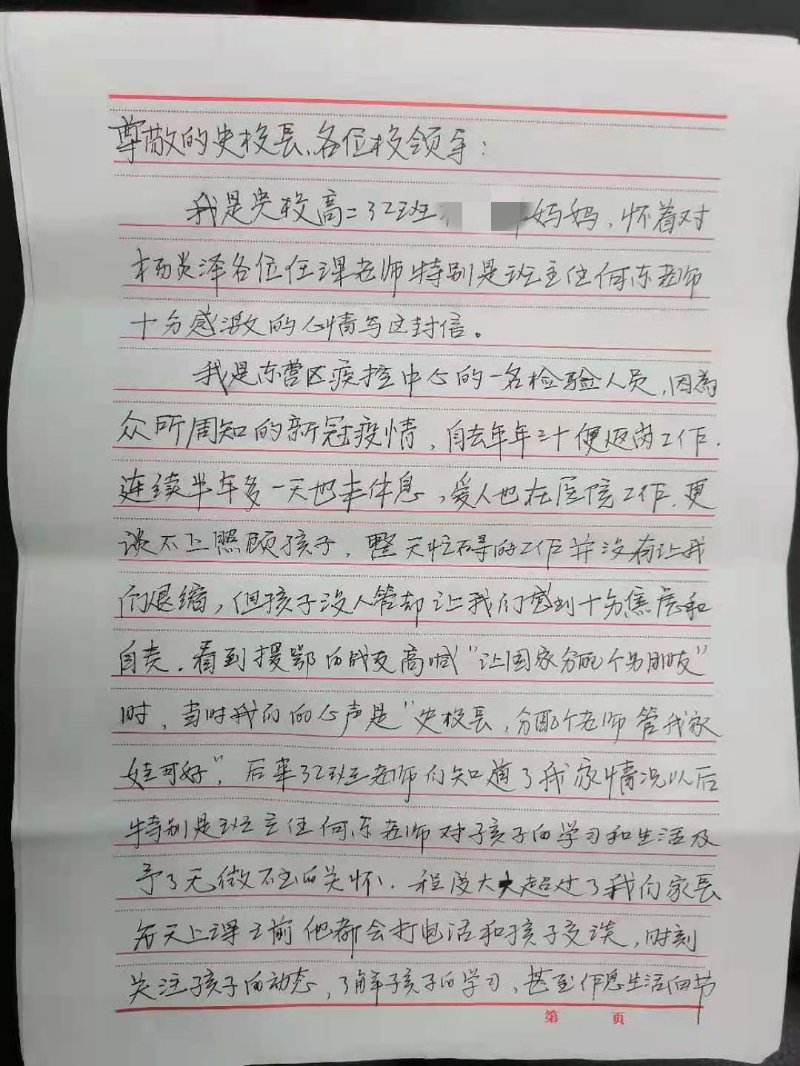 尊敬的史校长、各位校领导：
我是贵校高二32班 妈妈，怀着对
杨炎泽各位任课老师特别是班主任何东老师
十分感激的心情写这封信。
我是东营区疾控中心的一名检验人员，因为
众所周知的新冠疫情，自去年年三十便返岗工作.
连续半年多一天也未休息，爱人也在医院工作.更
谈不上照顾孩子，整天忙碌的工作并没有让我
们退缩，但孩子没人管却让我们感到十分焦虑和
自责.看到援鄂的战友高喊"让国家分配个男朋友"
时，当时我们的心声是"史校长，分配个老师管我家
娃可好"，后来32班老师们知道了我家情况以后
特别是班主任何东老师对孩子的学习和生活及
予了无微不至的关怀.程度大大超过了我们家长
每天上课之前他都会打电话和孩子交谈，时刻
关注孩子的动态，了解孩子的学习，甚至作息生活的节
第 页